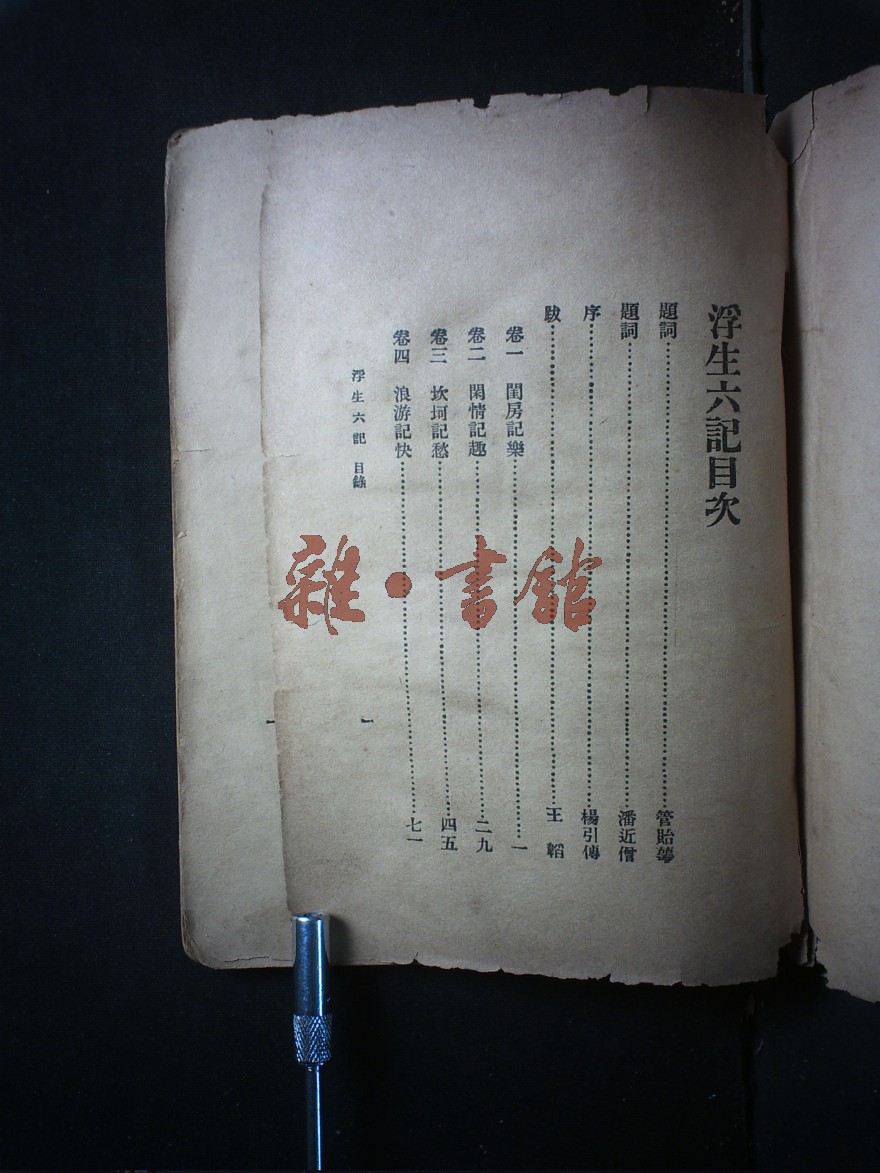 浮生六記目次
題詞……管貽萼
題詞……潘近僧
序……楊引傳
跋……王 韜
卷一 閨房記樂……一
卷二 閑情記趣……二九
卷三 坎坷記愁……四五
卷四 浪游記快……七一
浮生六記 目錄
一
雜·書館